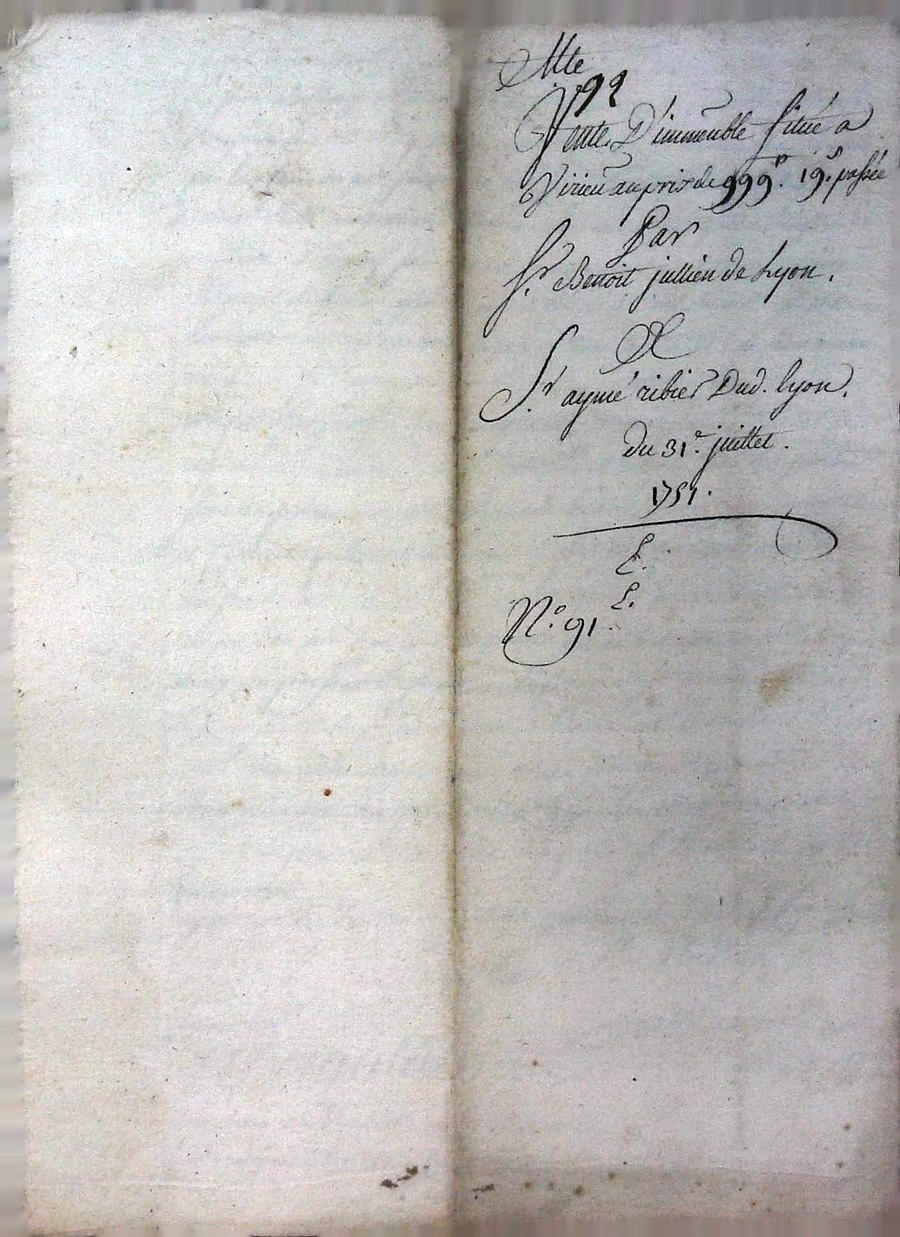 Cotte
92
Vente D'immeuble située a
Virieu au prix de 999ᵗᵗ. 19ˢ. passée
Par
Sʳ. Benoit jullien de Lyon.
A
Sʳ. aymé ribier Dud. lyon.
du 31ᵉ. juillet.
1751.
L.
L.
N.º 91